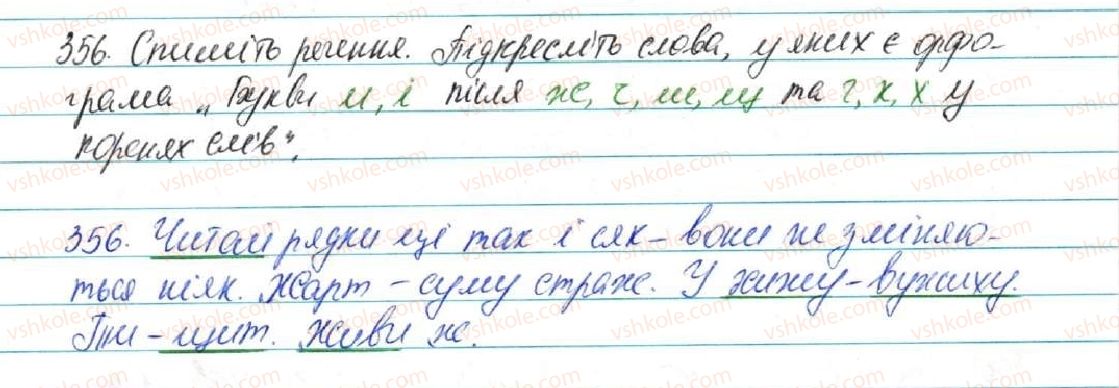 356. Спишіть речення. Підкресліть слова, у яких є орфо-
грама „Букви и, і після ж, ч, ш, щ та г, к, х у
коренях слів".
356. Читай рядки ці так і сяк – вони не зміняю-
ться ніяк. Жарт – суму страж. У хижу – вужиху.
Ти – щит. Живи ж.